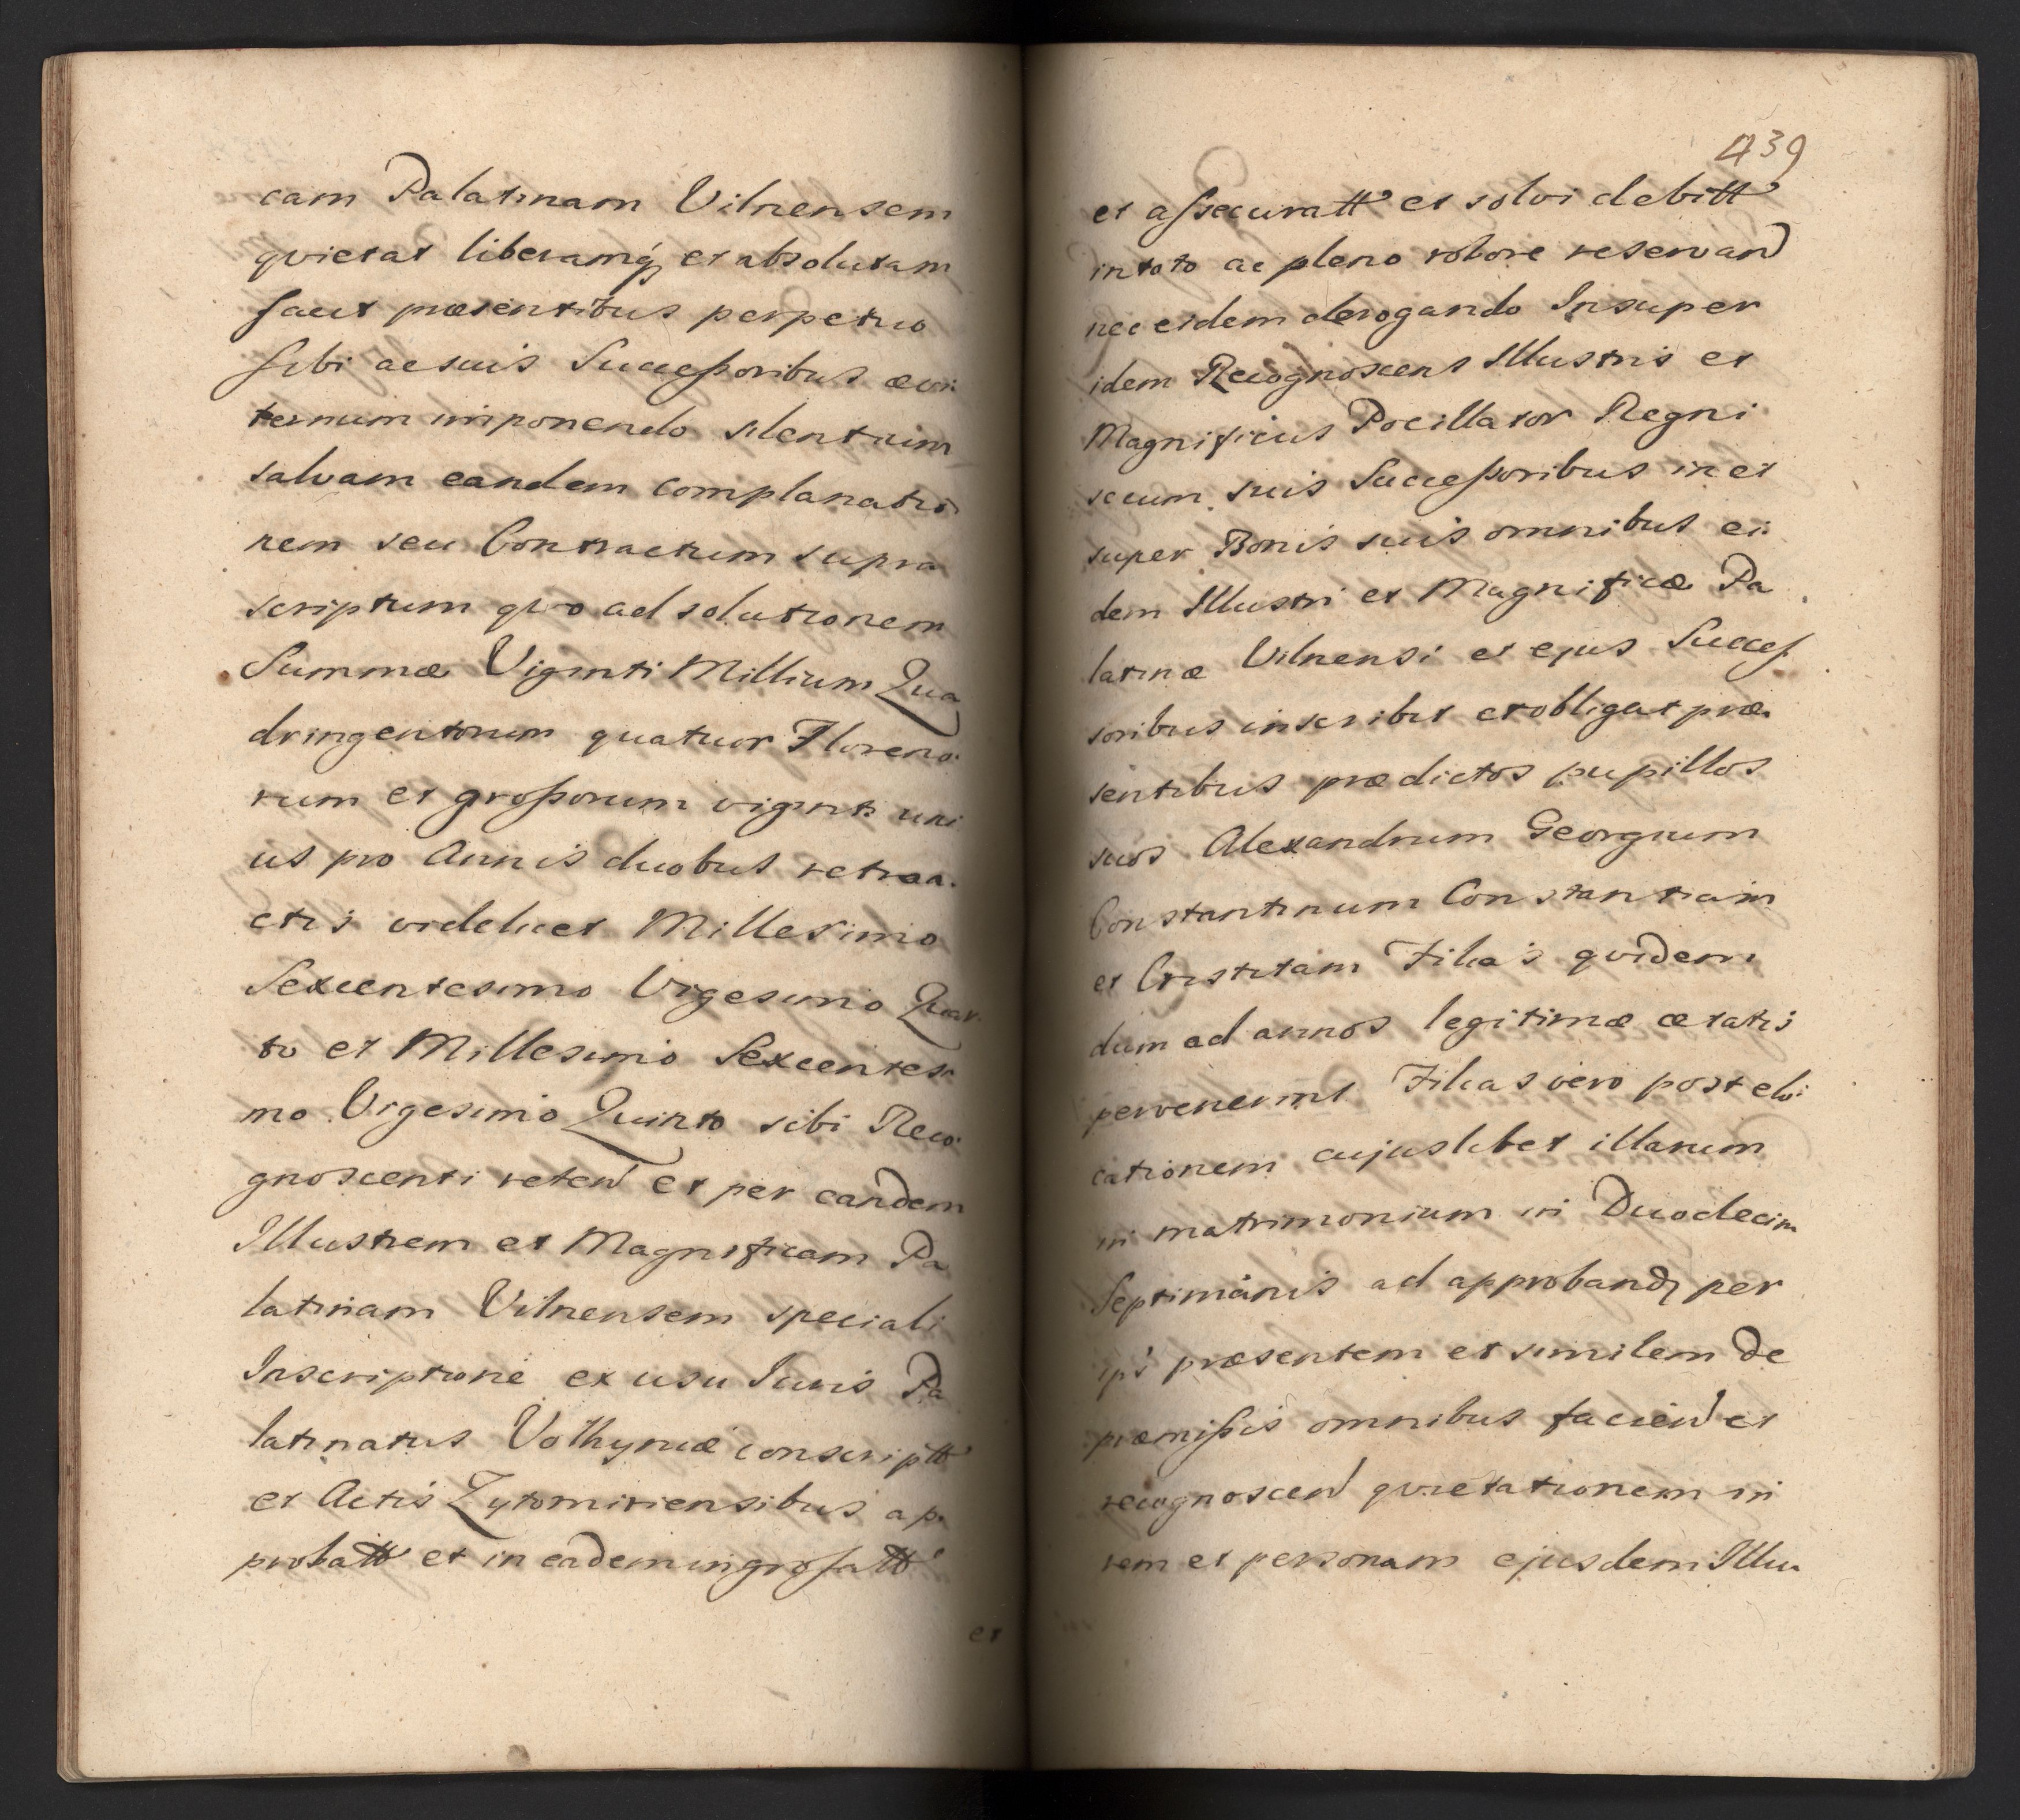 cam Palatinam Vilnensem
quietat liberamq₃ et absolutam
facit præsentibus perpetuo
sibi ac suis Successoribus ævi
ternum imponendo silentium
salvam eandem complanatio
nem seu Contractum supra
scriptum quo ad solutionem
Summæ Viginti Millium Qua
dringentorum quatuor Floreno
rum et grossorum viginti uni
us pro Annis duobus retroa
ctis videlicet Millesimo
Sexcentesimo Vigesimo Quar
to et Millesimo Sexcentesi
mo Vigesimo Quinto sibi Reco
gnoscenti reten et per eandem
Illustrem et Magnificam Pa
latinam Vilnensem speciali
Inscriptione ex usu Iuris Pa
latinatus Volhyniæ conscriptt
et Actis Zytomiriensibus ap
probatt et in eadem ingrossatt
et
439
et assecuratt et solvi debitt
in toto ac pleno robore reservand
nec eidem derogando Insuper
idem Recognoscens Illustris et
Magnificus Pocillator Regni
secum suis Successoribus in et
super Bonis suis omnibus ei
dem Illustri et Magnificæ Pa
latinæ Vilnensi et ejus Succes
soribus inscribit et obligat præ
sentibus prædictos pupillos
suos Alexandrum Georgium
Constantinum Constantiam
et Cristitam Filios quidem
dum ad annos legitimæ ætatis
pervenerint Filias vero post elo
cationem cujuslibet illarum
in matrimonium in Duodecim
Septimanis ad approband per
ips præsentem et similem de
præmissis omnibus faciend et
recognoscend quietationem in
rem et personam ejusdem Illu